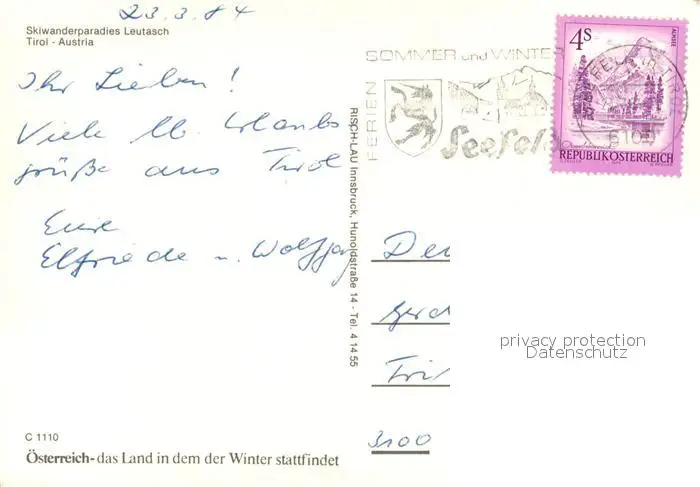 23.3.84
Skiwanderparadies Leutasch
Tirol - Austria
Ihr Lieben!
Viele lb. Urlaubs
grüße aus Tirol
Eure
Elfriede u. Wolfgang
C 1110
Österreich - das Land in dem der Winter stattfindet
RISCH-LAU Innsbruck, Hunoldstraße 14 - Tel. 4 14 55
FERIEN
SOMMER und WINTER
Seefeld
4S
ALMSEE
REPUBLIK ÖSTERREICH
6100
3100
privacy protection
Datenschutz